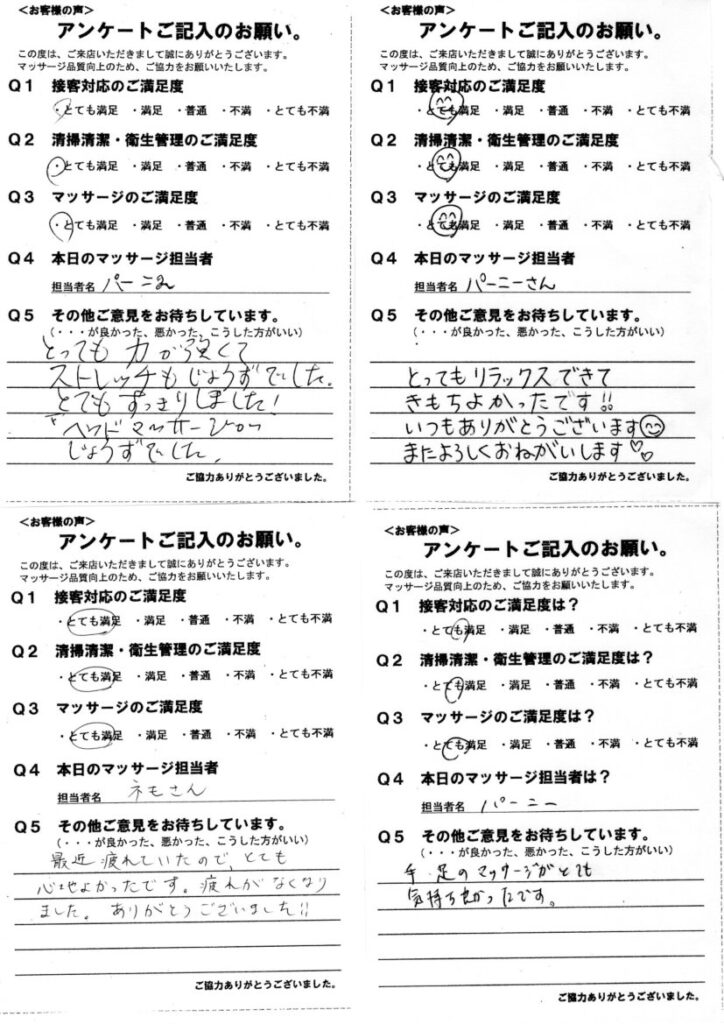 ＜お客様の声＞
アンケートご記入のお願い。
この度は、ご来店いただきまして誠にありがとうございます。
マッサージ品質向上のため、ご協力をお願いいたします。
Q1 接客対応のご満足度
・とても満足 ・満足 ・普通 ・不満 ・とても不満
Q2 清掃清潔・衛生管理のご満足度
・とても満足 ・満足 ・普通 ・不満 ・とても不満
Q3 マッサージのご満足度
・とても満足 ・満足 ・普通 ・不満 ・とても不満
Q4 本日のマッサージ担当者
担当者名 パーニ
Q5 その他ご意見をお待ちしています。
（・・・が良かった、悪かった、こうした方がいい）
とっても 力が強くて
ストレッチもじょうずでした。
とてもすっきりしました！
ヘッドマッサージ
じょうずでした。
ご協力ありがとうございました。
＜お客様の声＞
アンケートご記入のお願い。
この度は、ご来店いただきまして誠にありがとうございます。
マッサージ品質向上のため、ご協力をお願いいたします。
Q1 接客対応のご満足度
・とても満足 ・満足 ・普通 ・不満 ・とても不満
Q2 清掃清潔・衛生管理のご満足度
・とても満足 ・満足 ・普通 ・不満 ・とても不満
Q3 マッサージのご満足度
・とても満足 ・満足 ・普通 ・不満 ・とても不満
Q4 本日のマッサージ担当者
担当者名 パーニーさん
Q5 その他ご意見をお待ちしています。
（・・・が良かった、悪かった、こうした方がいい）
とってもリラックスできて
きもちよかったです!!
いつもありがとうございます
またよろしくおねがいします♡♡
ご協力ありがとうございました。
＜お客様の声＞
アンケートご記入のお願い。
この度は、ご来店いただきまして誠にありがとうございます。
マッサージ品質向上のため、ご協力をお願いいたします。
Q1 接客対応のご満足度
・とても満足 ・満足 ・普通 ・不満 ・とても不満
Q2 清掃清潔・衛生管理のご満足度
・とても満足 ・満足 ・普通 ・不満 ・とても不満
Q3 マッサージのご満足度
・とても満足 ・満足 ・普通 ・不満 ・とても不満
Q4 本日のマッサージ担当者
担当者名 ネモさん
Q5 その他ご意見をお待ちしています。
（・・・が良かった、悪かった、こうした方がいい）
最近疲れていたので、とても
心地よかったです。疲れがなくなり
ました。ありがとうございました!!
ご協力ありがとうございました。
＜お客様の声＞
アンケートご記入のお願い。
この度は、ご来店いただきまして誠にありがとうございます。
マッサージ品質向上のため、ご協力をお願いいたします。
Q1 接客対応のご満足度は？
・とても満足 ・満足 ・普通 ・不満 ・とても不満
Q2 清掃清潔・衛生管理のご満足度は？
・とても満足 ・満足 ・普通 ・不満 ・とても不満
Q3 マッサージのご満足度は？
・とても満足 ・満足 ・普通 ・不満 ・とても不満
Q4 本日のマッサージ担当者は？
担当者名 パーニー
Q5 その他ご意見をお待ちしています。
（・・・が良かった、悪かった、こうした方がいい）
手 足のマッサージがとても
気持ち良かったです。
ご協力ありがとうございました。